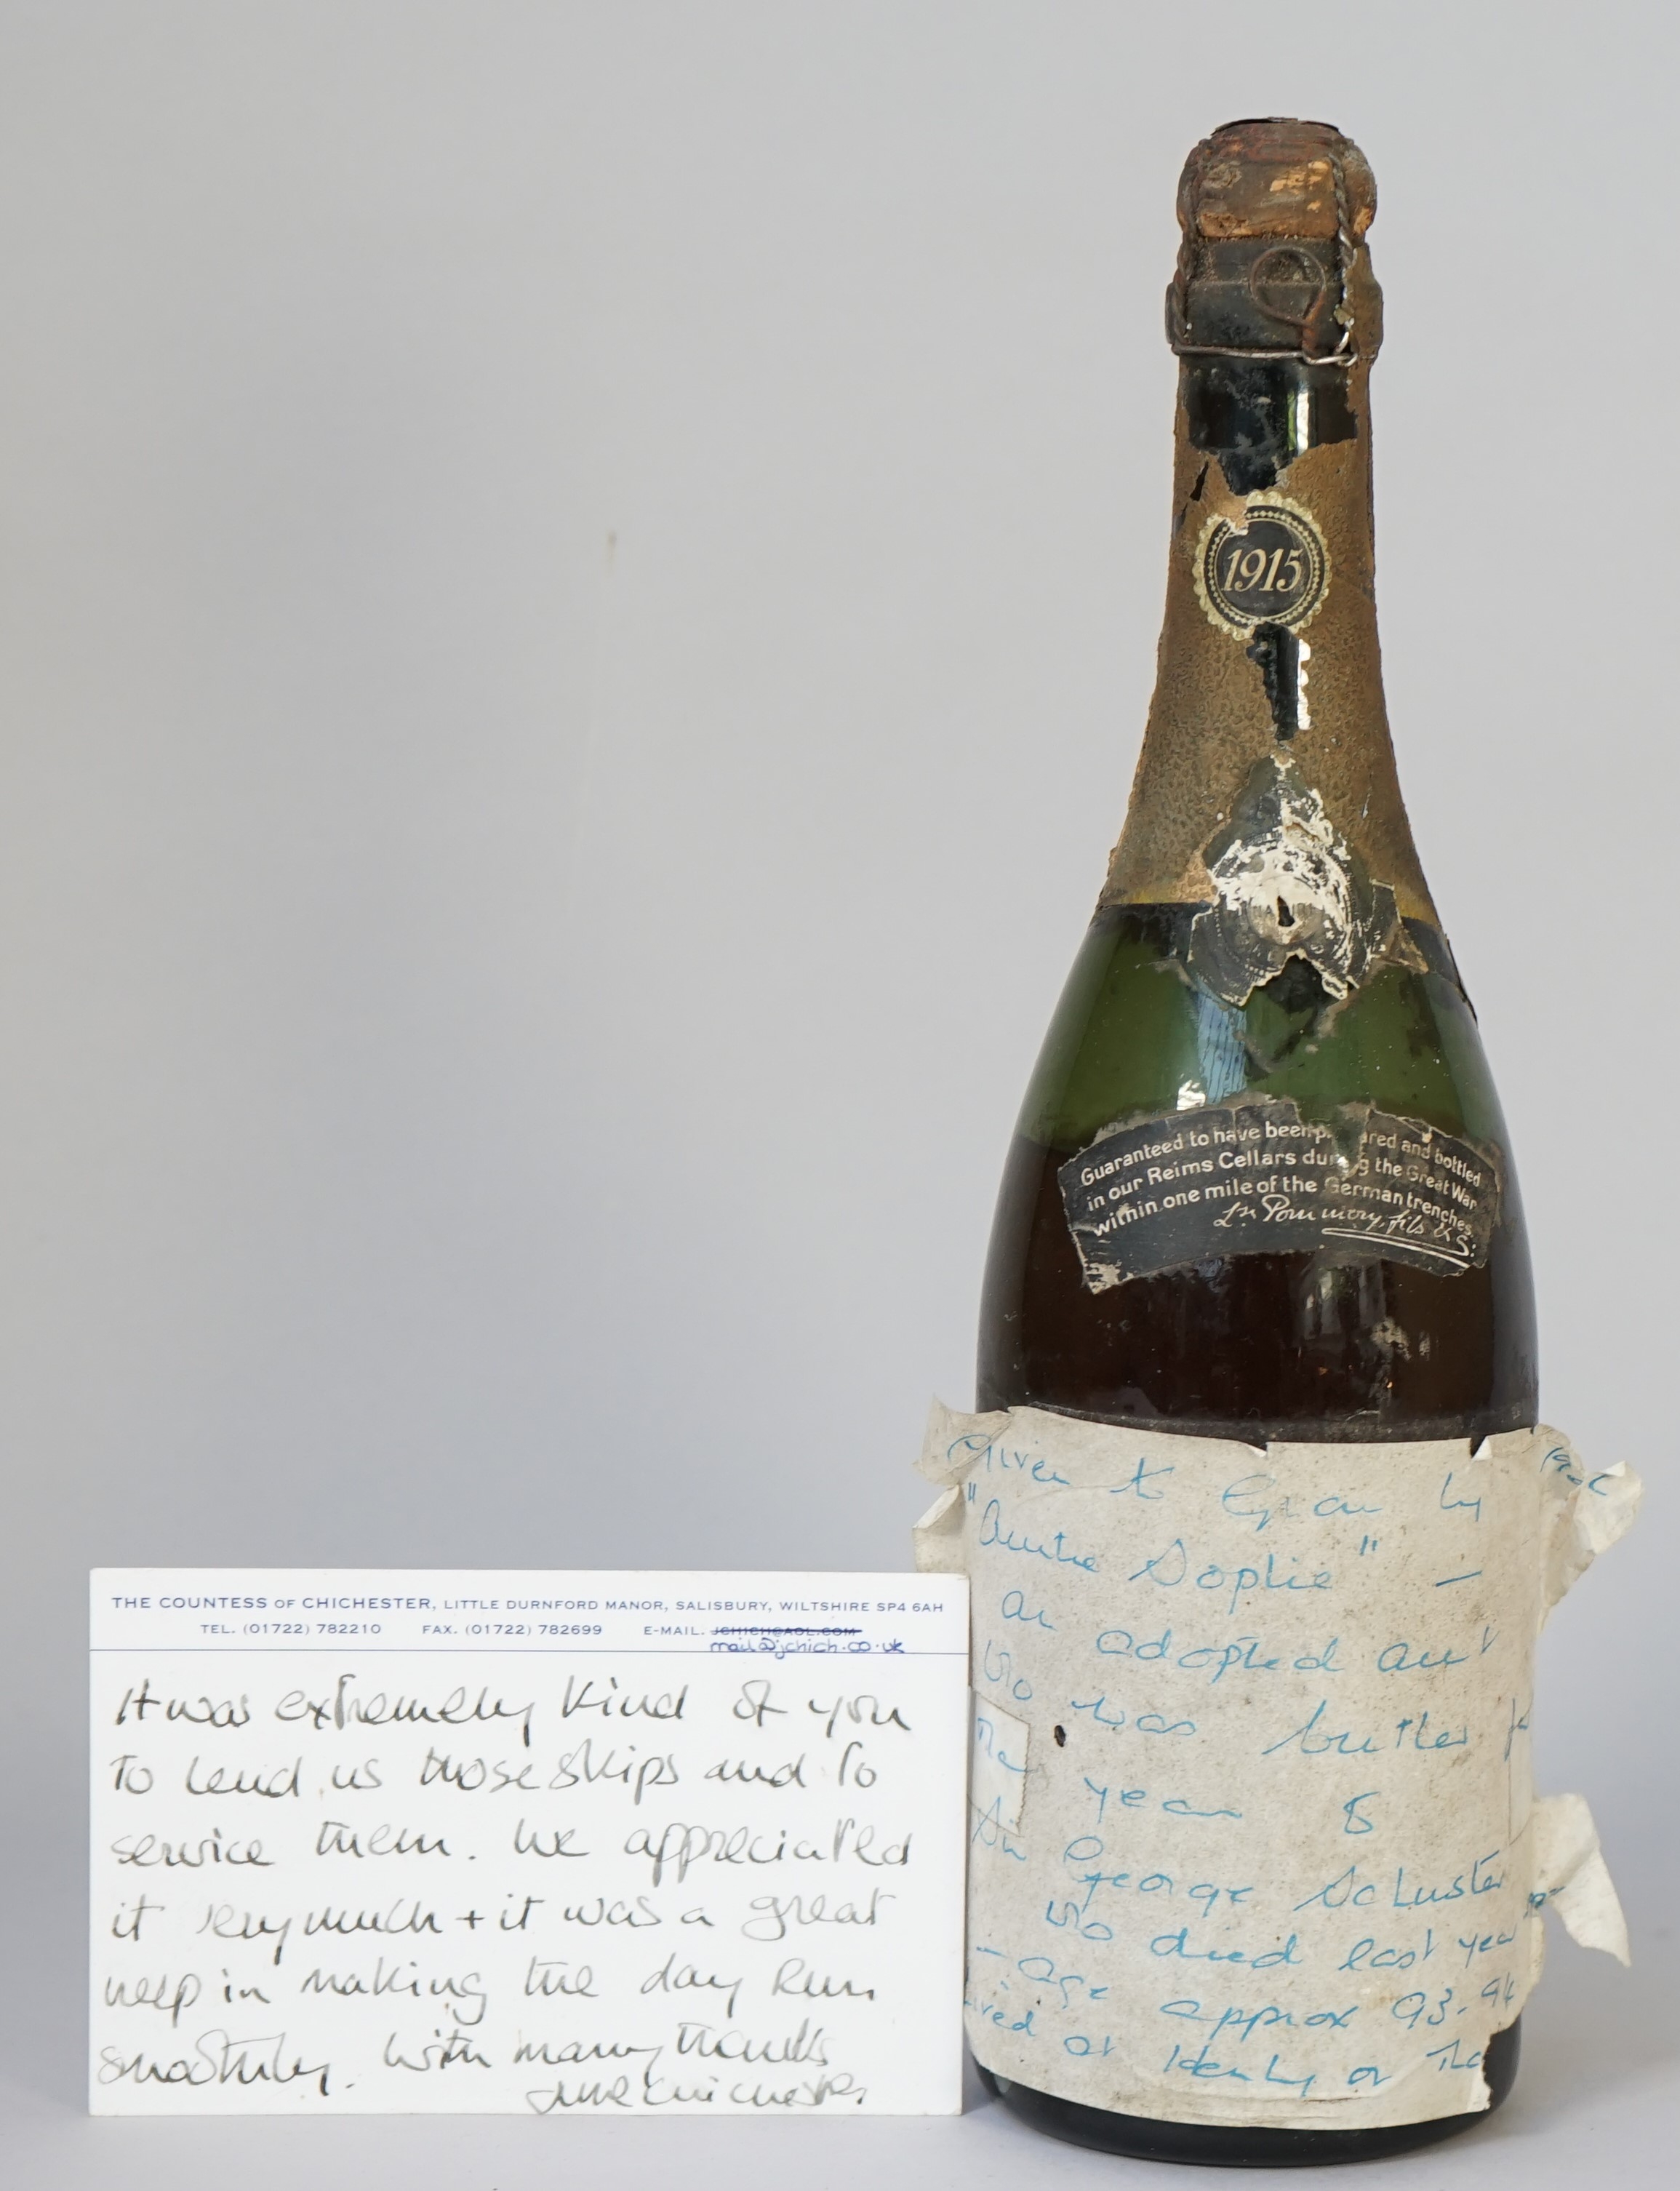 1915
Guaranteed to have been p ared and bottled
in our Reims Cellars during the Great War
within one mile of the German trenches.
Pommery, fils & Co.
Given to Gran by
"Auntie Sophie" –
an adopted aunt
who was butler for
the year 8
Sir George Schuster
who died last year
– age approx 93-94
lived at Henley or The
THE COUNTESS OF CHICHESTER, LITTLE DURNFORD MANOR, SALISBURY, WILTSHIRE SP4 6AH
TEL. (01722) 782210 FAX. (01722) 782699 E-MAIL. JCHICH@AOL.COM
mail@jchich.co.uk
It was extremely kind of you
to lend us those skips and to
service them. We appreciated
it very much + it was a great
help in making the day run
smoothly. With many thanks
June Chichester